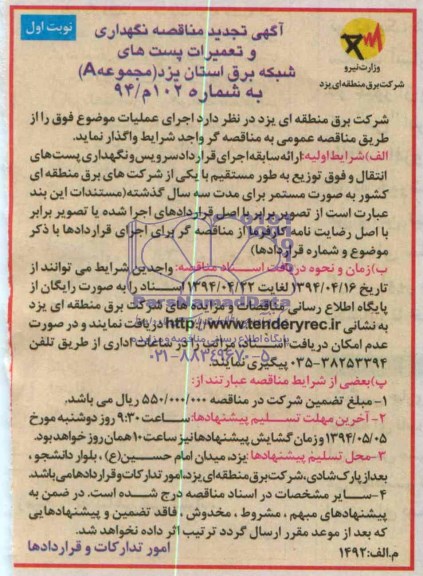 نوبت اول
آگهی تجدید مناقصه نگهداری
و تعمیرات پست های
شبکه برق استان یزد(مجموعهA)
به شماره ۱۰۲م/۹۴
وزارت نیرو
شرکت برق منطقه ای یزد
شرکت برق منطقه ای یزد در نظر دارد اجرای عملیات موضوع فوق را از
طریق مناقصه عمومی به مناقصه گر واجد شرایط واگذار نماید.
الف)شرایط اولیه:ارائه سابقه اجرای قرارداد سرویس و نگهداری پست های
انتقال و فوق توزیع به طور مستقیم با یکی از شرکت های برق منطقه ای
کشور به صورت مستمر برای مدت سه سال گذشته(مستندات این بند
عبارت است از تصویر برابر با اصل قراردادهای اجرا شده یا تصویر برابر
با اصل رضایت نامه کارفرما از مناقصه گر برای اجرای قراردادها با ذکر
موضوع و شماره قراردادها)
ب)زمان و نحوه دریافت اسناد مناقصه: واجدین شرایط می توانند از
تاریخ ۱۳۹۴/۰۴/۱۶ لغایت ۱۳۹۴/۰۴/۲۲ اسناد را به صورت رایگان از
پایگاه اطلاع رسانی مناقصات و مزایده های شرکت برق منطقه ای یزد
به نشانی http://www.tenderyrec.ir دریافت نمایند و در صورت
عدم امکان دریافت اسناد، مراتب را در ساعات اداری از طریق تلفن
۰۳۵-۳۸۲۵۳۳۹۴ پیگیری نمایند.
پ)بعضی از شرایط مناقصه عبارتند از:
۱- مبلغ تضمین شرکت در مناقصه ۵۵۰/۰۰۰/۰۰۰ ریال می باشد.
۲- آخرین مهلت تسلیم پیشنهادها: ساعت ۹:۳۰ روز دوشنبه مورخ
۱۳۹۴/۰۵/۰۵ و زمان گشایش پیشنهادها نیز ساعت ۱۰ همان روز خواهد بود.
۳-محل تسلیم پیشنهادها: یزد، میدان امام حسین(ع) ، بلوار دانشجو ،
بعد از پارک شادی، شرکت برق منطقه ای یزد، امور تدارکات و قراردادها می باشد.
۴-سایر مشخصات در اسناد مناقصه درج شده است. در ضمن به
پیشنهادهای مبهم ، مشروط ، مخدوش ، فاقد تضمین و پیشنهادهایی
که بعد از موعد مقرر ارسال گردد ترتیب اثر داده نخواهد شد.
امور تدارکات و قراردادها
م.الف:۱۴۹۲
ParsNamadData
پایگاه اطلاع رسانی مناقصه و مزایده
۰۲۱-۸۸۳۴۹۶۷۰-۵